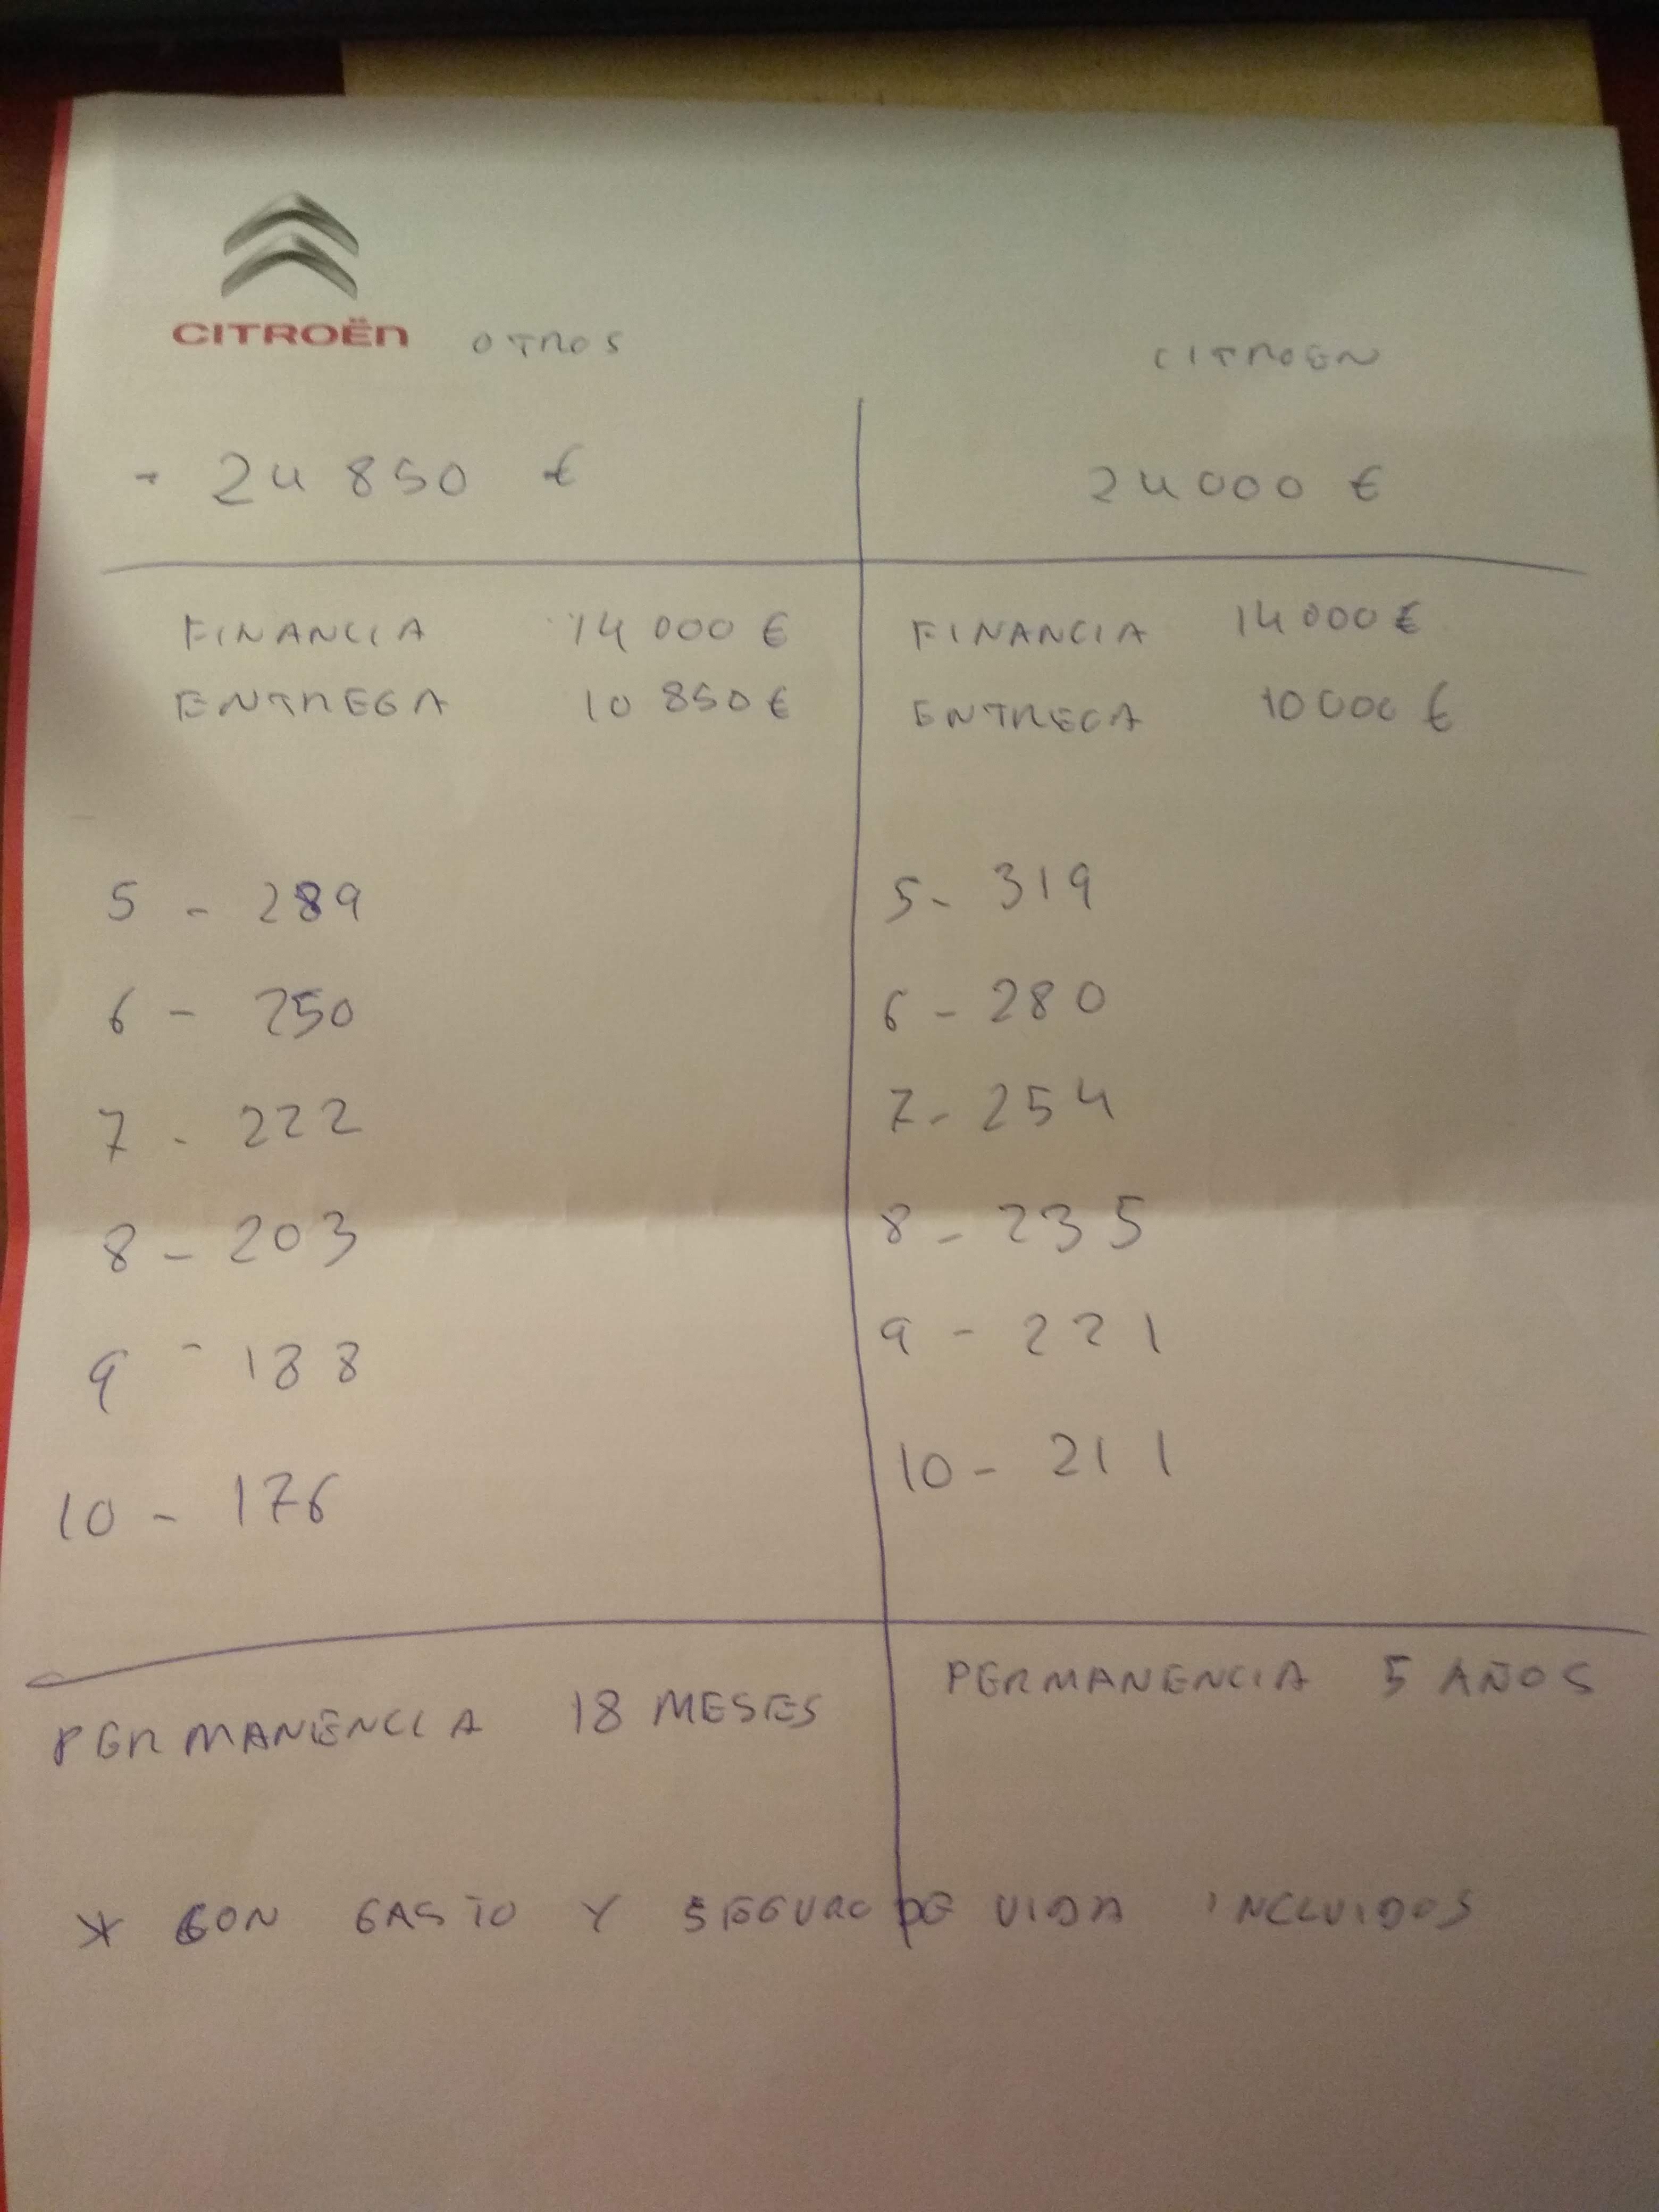 CITROËN OTROS CITROEN
- 24 850 € 24000 €
FINANCIA 14 000 € FINANCIA 14000 €
ENTREGA 10 850 € ENTREGA 10000 €
5 - 289 5 - 319
6 - 250 6 - 280
7 - 222 7 - 254
8 - 203 8 - 235
9 - 188 9 - 221
10 - 176 10 - 211
PERMANENCIA 18 MESES PERMANENCIA 5 AÑOS
* CON GASTO Y SEGURO DE VIDA INCLUIDOS